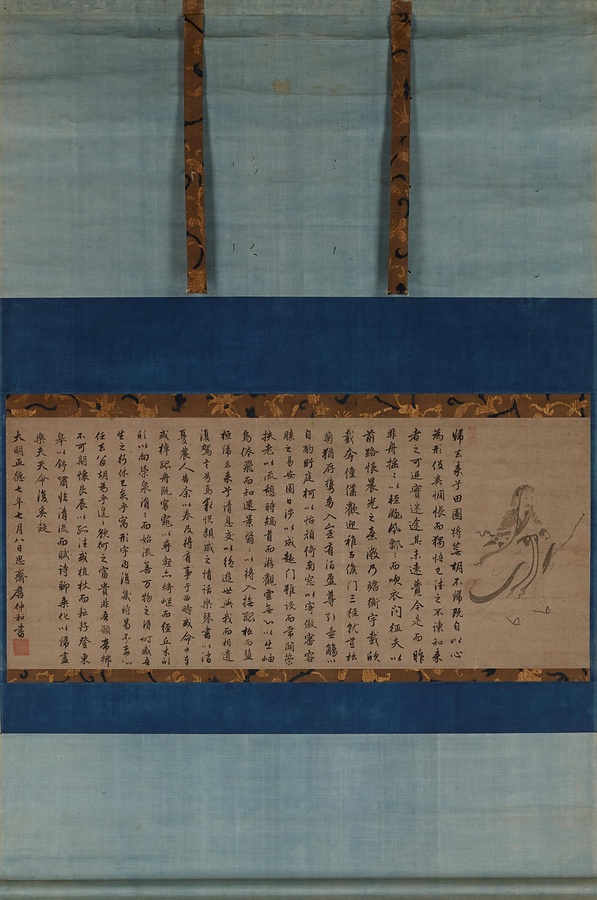 歸去来兮田園將蕪胡不歸既自以心
為形役奚惆悵而獨悲已往之不諫知来
者之可追實迷途其未遠覺今是而昨
非舟搖〻以輕颺風飄〻而吹衣问征夫以
前路恨晨光之熹微乃瞻衡宇載欣
載奔僮僕歡迎稚子候门三径就荒松
菊猶存携幼入室有酒盈尊引壺觴以
自酌眄庭柯以怡颜倚南窓以寄傲審容
膝之易安園日涉以成趣门雖设而常関策
扶老以流憩時矯首而遐觀雲無心以出岫
鳥倦飛而知還景翳〻以將入撫孤松而盤
桓歸去来兮请息交以绝游世與我而相遺
復駕言兮焉求悦親戚之情话樂琴書以消
憂農人告余以春及將有事于西畴或命巾車
或棹孤舟既窈窕以尋壑亦崎嶇而经丘木欣
欣以向榮泉涓〻而始流善万物之得时感吾
生之行休已矣乎寓形宇内復幾時曷不委心
任去留胡為乎遑〻欲何之富貴非吾願帝鄉
不可期懷良辰以孤往或植杖而耘耔登東
皋以舒嘯临清流而赋诗聊乘化以歸盡
樂夫天命復奚疑
大明正德七年七月八日思齋詹仲和書